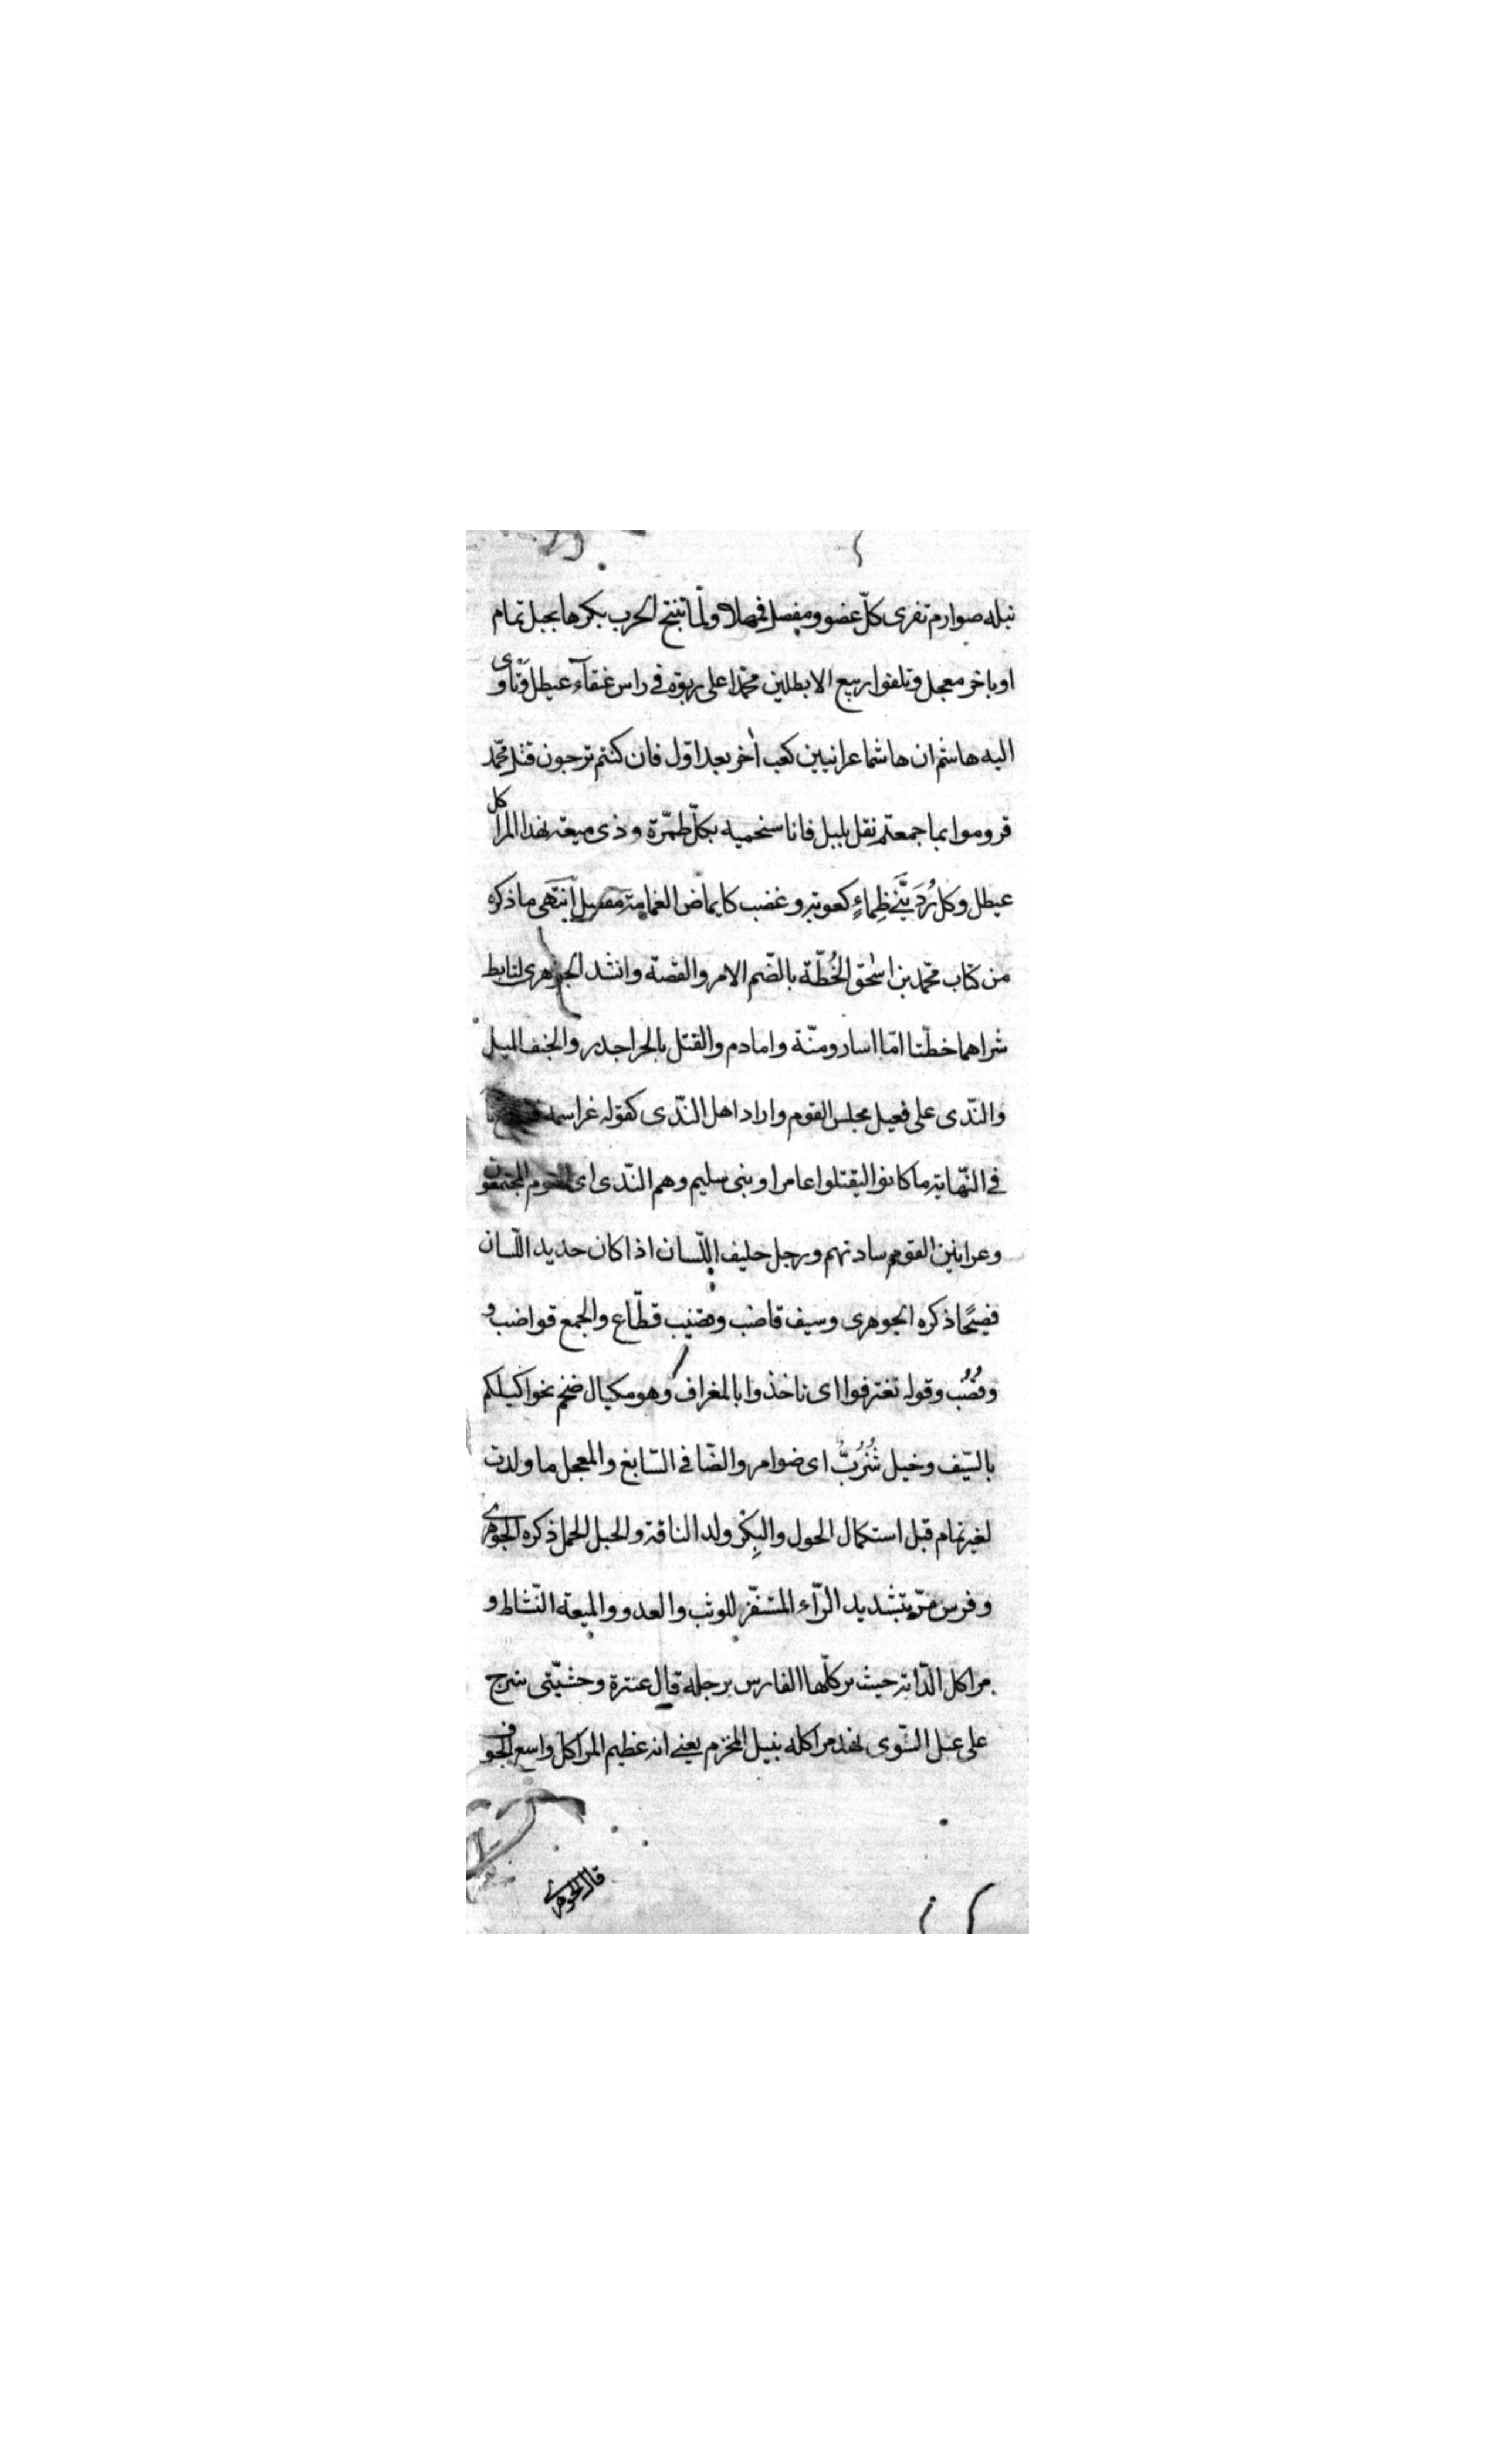 نبله صوارم تفرى كلّ عضو ومفصل فمهلا ولمّا تنتج الحرب بكرها بحبل تمام
او باخر معجل وتلقوا ربيع الابطلين محمّدا على ربوة في راس عنقآء عيطل وتاوى
اليه هاشم ان هاشما عرانيين كعب اخر بعد اوّل فان كنتم ترجون قتل محمّد
فروموا بما جمعتم نقل يلبل فانا سنحميه بكلّ طمّرة وذى ميعة نهد المراكل
عيطل وكل رُدَينّى ظِماءٍ كعوبه وغضب كايماض الغمامة مفصل انتهى ما ذكره
من كتاب محمّد بن اسحق الخُطّة بالضّم الامر والقصّة وانشد الجوهرى لتابط
شرا هما خطّتا امّا اسار ومنّة واما دم والقتل بالحر اجدر والخنف الميل
والنّدى على فعيل مجلس القوم واراد اهل النّدى كقوله غراسمه
في النّهاية ما كانوا ليقتلوا عامرا وبنى سليم وهم النّدى اى القوم المجتمعون
وعرانين القوم ساداتهم ورجل حليف اللّسان اذا كان حديد اللّسان
فصيحًا ذكره الجوهرى وسيف قاضب وقضيب قطّاع والجمع قواضب و
وقُضُب وقوله تغترفوا اى تاخذوا بالمغراف وهو مكيال ضخم نحوا كيلكم
بالسّيف وخيل شُزُبٌ اى ضوامر والضّافى السّابغ والمعجل ما ولدت
لغير تمام قبل استكمال الحول والبِكر ولد الناقة والحبل الحمل ذكره الجوهرى
وفرس مرّ بتشديد الرّاء المستفّز للوثب والعدو والميعة النّشاط و
مراكل الدّابة حيث يركلها الفارس برجله قال عنترة وحشيّتى سرج
على عبل الشّوى نهد مراكله نبيل المحزم يعنى انه عظيم المراكل واسع الجوف
قال الجوهرى